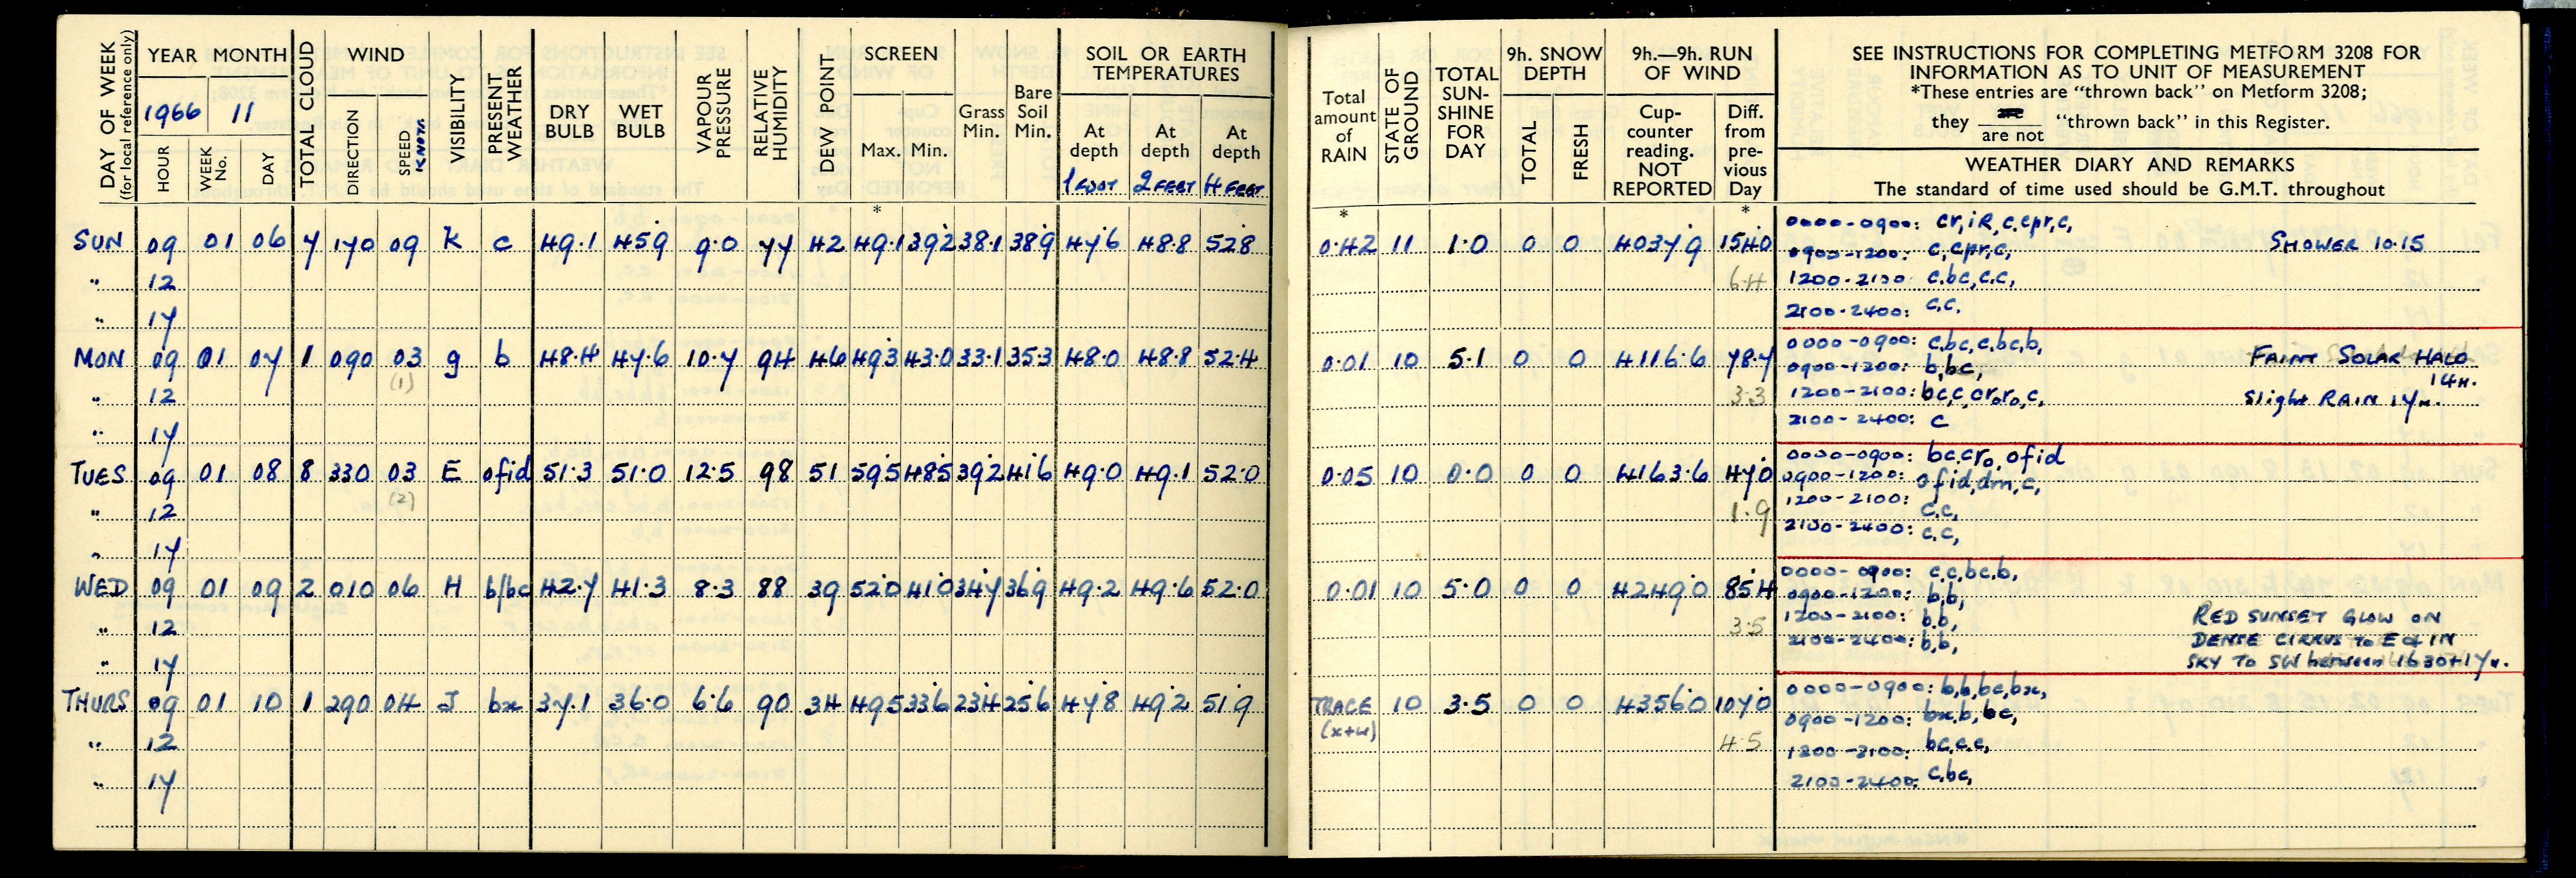 DAY OF WEEK
(for local reference only)
YEAR MONTH
1966 11
HOUR
WEEK No.
DAY
TOTAL CLOUD
WIND
DIRECTION
SPEED KNOTS
VISIBILITY
PRESENT WEATHER
DRY BULB
WET BULB
VAPOUR PRESSURE
RELATIVE HUMIDITY
DEW POINT
SCREEN
Max. Min.
*
Grass Min.
Bare Soil Min.
SOIL OR EARTH TEMPERATURES
At depth At depth At depth
1 FOOT 2 FEET 4 FEET
SUN 09 01 06 7 170 09 K c 49.1 45.9 9.0 77 42 49.1 39.2 38.1 38.9 47.6 48.8 52.8
" 12
" 17
MON 09 01 07 1 090 03 g b 48.4 47.6 10.7 94 46 49.3 43.0 33.1 35.3 48.0 48.8 52.4
(1)
" 12
" 17
TUES 09 01 08 8 330 03 E ofid 51.3 51.0 12.5 98 51 59.5 48.5 39.2 41.6 49.0 49.1 52.0
(2)
" 12
" 17
WED 09 01 09 2 010 06 H b/bc 42.7 41.3 8.3 88 39 52.0 41.0 34.7 36.9 49.2 49.6 52.0
" 12
" 17
THURS 09 01 10 1 290 04 J bx 37.1 36.0 6.6 90 34 49.5 33.6 23.4 25.6 47.8 49.2 51.9
" 12
" 17
Total amount of RAIN
*
STATE OF GROUND
TOTAL SUN-SHINE FOR DAY
9h. SNOW DEPTH
TOTAL
FRESH
9h.—9h. RUN OF WIND
Cup-counter reading. NOT REPORTED
Diff. from pre-vious Day
*
SEE INSTRUCTIONS FOR COMPLETING METFORM 3208 FOR
INFORMATION AS TO UNIT OF MEASUREMENT
*These entries are "thrown back" on Metform 3208;
they are / are not "thrown back" in this Register.
WEATHER DIARY AND REMARKS
The standard of time used should be G.M.T. throughout
0.42 11 1.0 0 0 4037.9 154.0
6.4
0000-0900: cr,iR,c,cpr,c,
0900-1200: c,cpr,c, SHOWER 10.15
1200-2100: c.bc,c.c,
2100-2400: c.c.
0.01 10 5.1 0 0 4116.6 78.7
3.3
0000-0900: c,bc,c,bc,b, FAINT SOLAR HALO
0900-1200: b,bc, 14H.
1200-2100: bc,c,cr₀r₀,c, Slight RAIN 17H.
2100-2400: c
0.05 10 0.0 0 0 4163.6 47.0
1.9
0000-0900: bc,cr₀, ofid
0900-1200: ofid,dm,c,
1200-2100: c.c,
2100-2400: c.c,
0.01 10 5.0 0 0 4249.0 85.4
3.5
0000-0900: c,c,bc,b,
0900-1200: b,b,
1200-2100: b,b, RED SUNSET GLOW ON
2100-2400: b,b, DENSE CIRRUS TO E & IN
SKY TO SW between 1630+17H.
TRACE 10 3.5 0 0 4356.0 107.0
(x+w)
4.5
0000-0900: b,b,bc,bx,
0900-1200: bx,b,bc,
1200-2100: bc,c,c,
2100-2400: c,bc,